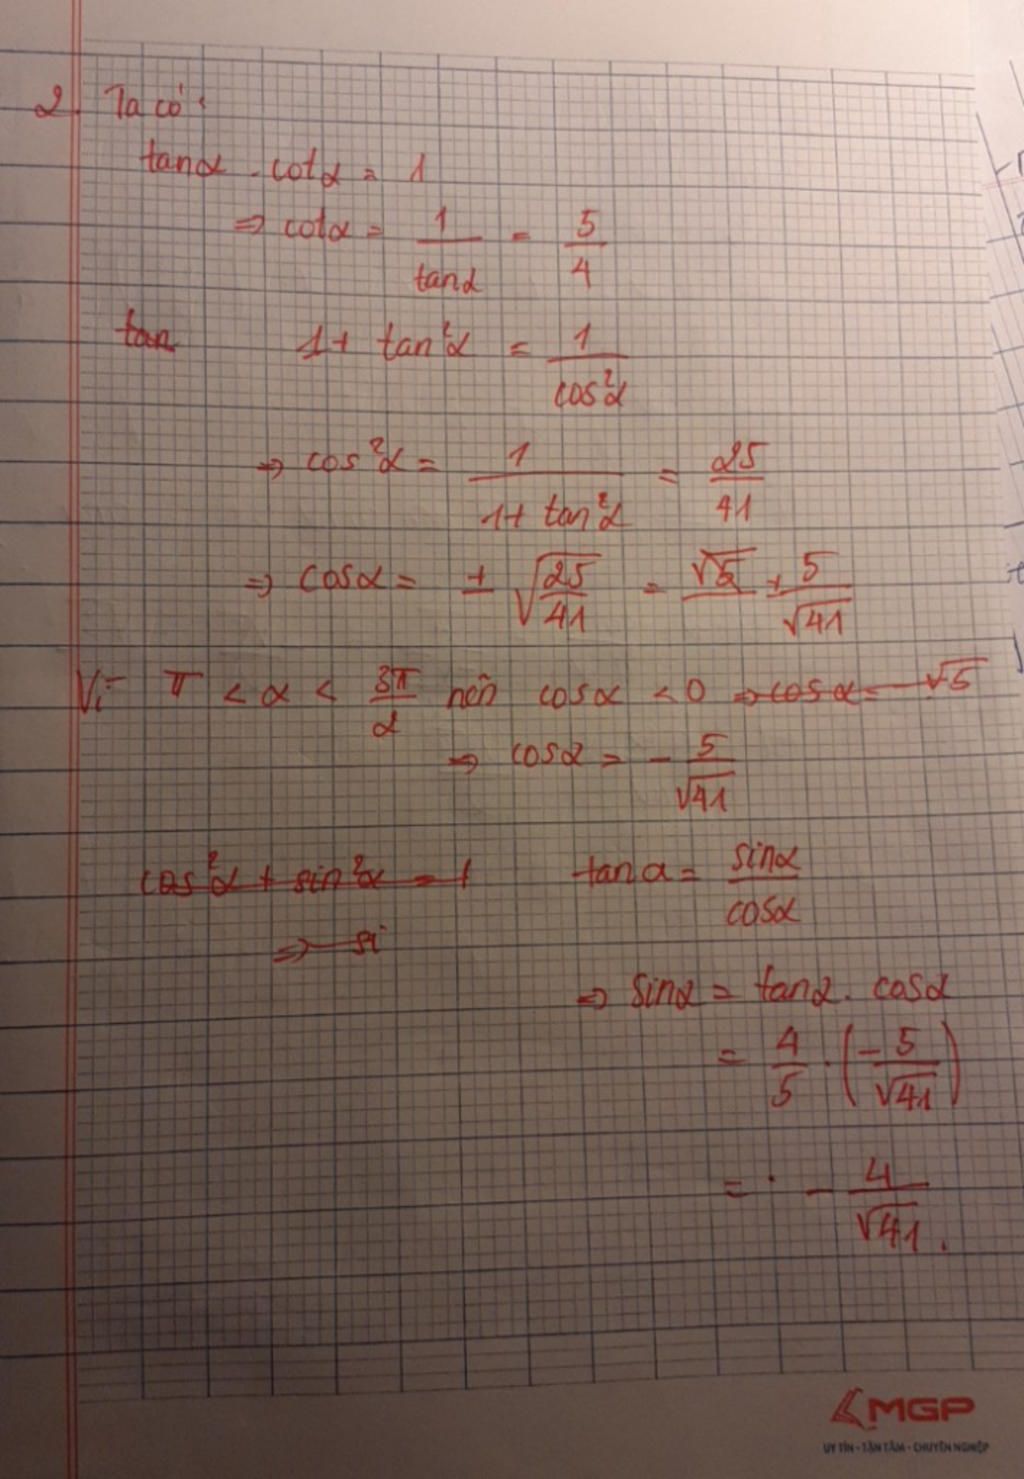 2 Ta có:
tanα . cotα = 1
⇒ cotα = 1/tanα = 5/4
tan 1 + tan²α = 1/cos²α
⇒ cos²α = 1/(1 + tan²α) = 25/41
⇒ cosα = ± √(25/41) = √5 ± 5/√41
Vì π < α < 3π/2 nên cosα < 0 ⇒ cosα = -√5
⇒ cosα = - 5/√41
cos²α + sin²α = 1 tanα = sinα/cosα
⇒ si
⇒ sinα = tanα . cosα
= 4/5 . (-5/√41)
= - 4/√41.
MGP
UY TÍN - TẬN TÂM - CHUYÊN NGHIỆP